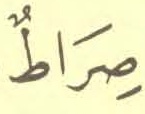 صِرَاطٌ